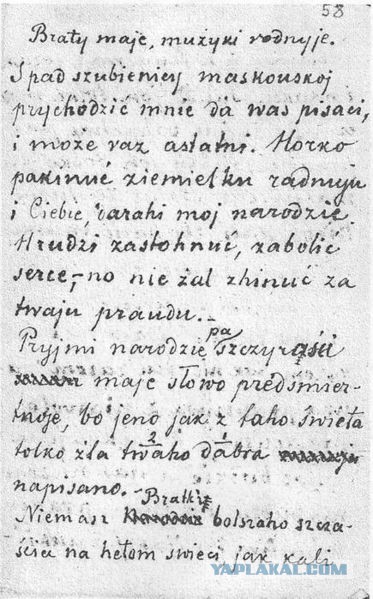 58
Braty maje, mużyki rodnyje.
S pad szubienicy maskouskoj
prychodzić mnie da was pisaci,
i może raz astatni. Horko
pakinuć ziemielku radnuju
i Ciebie, darahi moj narodzie.
Hrudzi zastohnuć, zabolić
serce,- no nie żal zhinuć za
twaju praudu.
Pryjmi narodzie pa szczyrości
maje słowo predśmier-
tnoje, bo jeno jak z taho świeta
tolko dla twaho 2 dabra 1
napisano.
Niemasz Bratki bolszaho szcza-
ścia na hetom świeci jak kali
YAPLAKAL.COM